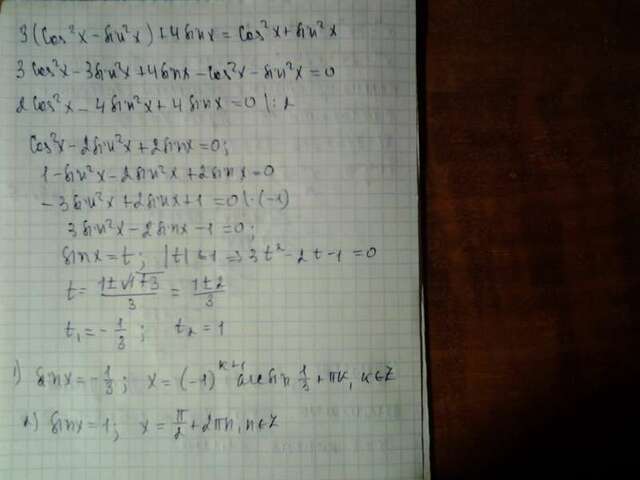 3(cos²x - sin²x) + 4sinx = cos²x + sin²x
3cos²x - 3sin²x + 4sinx - cos²x - sin²x = 0
2cos²x - 4sin²x + 4sinx = 0 |:2
cos²x - 2sin²x + 2sinx = 0;
1 - sin²x - 2sin²x + 2sinx = 0
-3sin²x + 2sinx + 1 = 0 |·(-1)
3sin²x - 2sinx - 1 = 0;
sinx = t; |t| ≤ 1 ⇒ 3t² - 2t - 1 = 0
t = (1±√1+3)/3 = (1±2)/3
t₁ = -1/3; t₂ = 1
1) sinx = -1/3; x = (-1)^(k+1) arcsin 1/3 + πk, k∈Z
2) sinx = 1; x = π/2 + 2πn, n∈Z